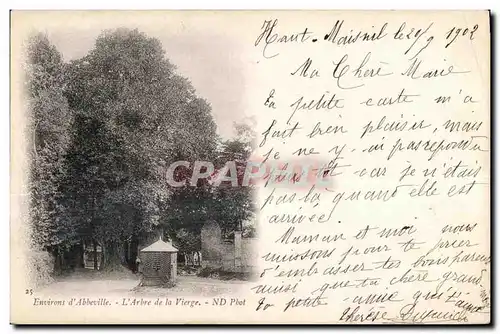 Haut-Maisnil le 20/9 1902
Ma Chère Marie
Ta petite carte m'a
fait bien plaisir, mais
je ne y ai pas
car je n'étais
pas là quand elle est
arrivée.
Maman et moi nous
unissons pour te prier
d'embrasser tes bons parents
ainsi que ta chère grand-
ta petite amie qui t'aime
Thérèse
CPARAMA.COM
25
Environs d'Abbeville. - L'Arbre de la Vierge. - ND Phot